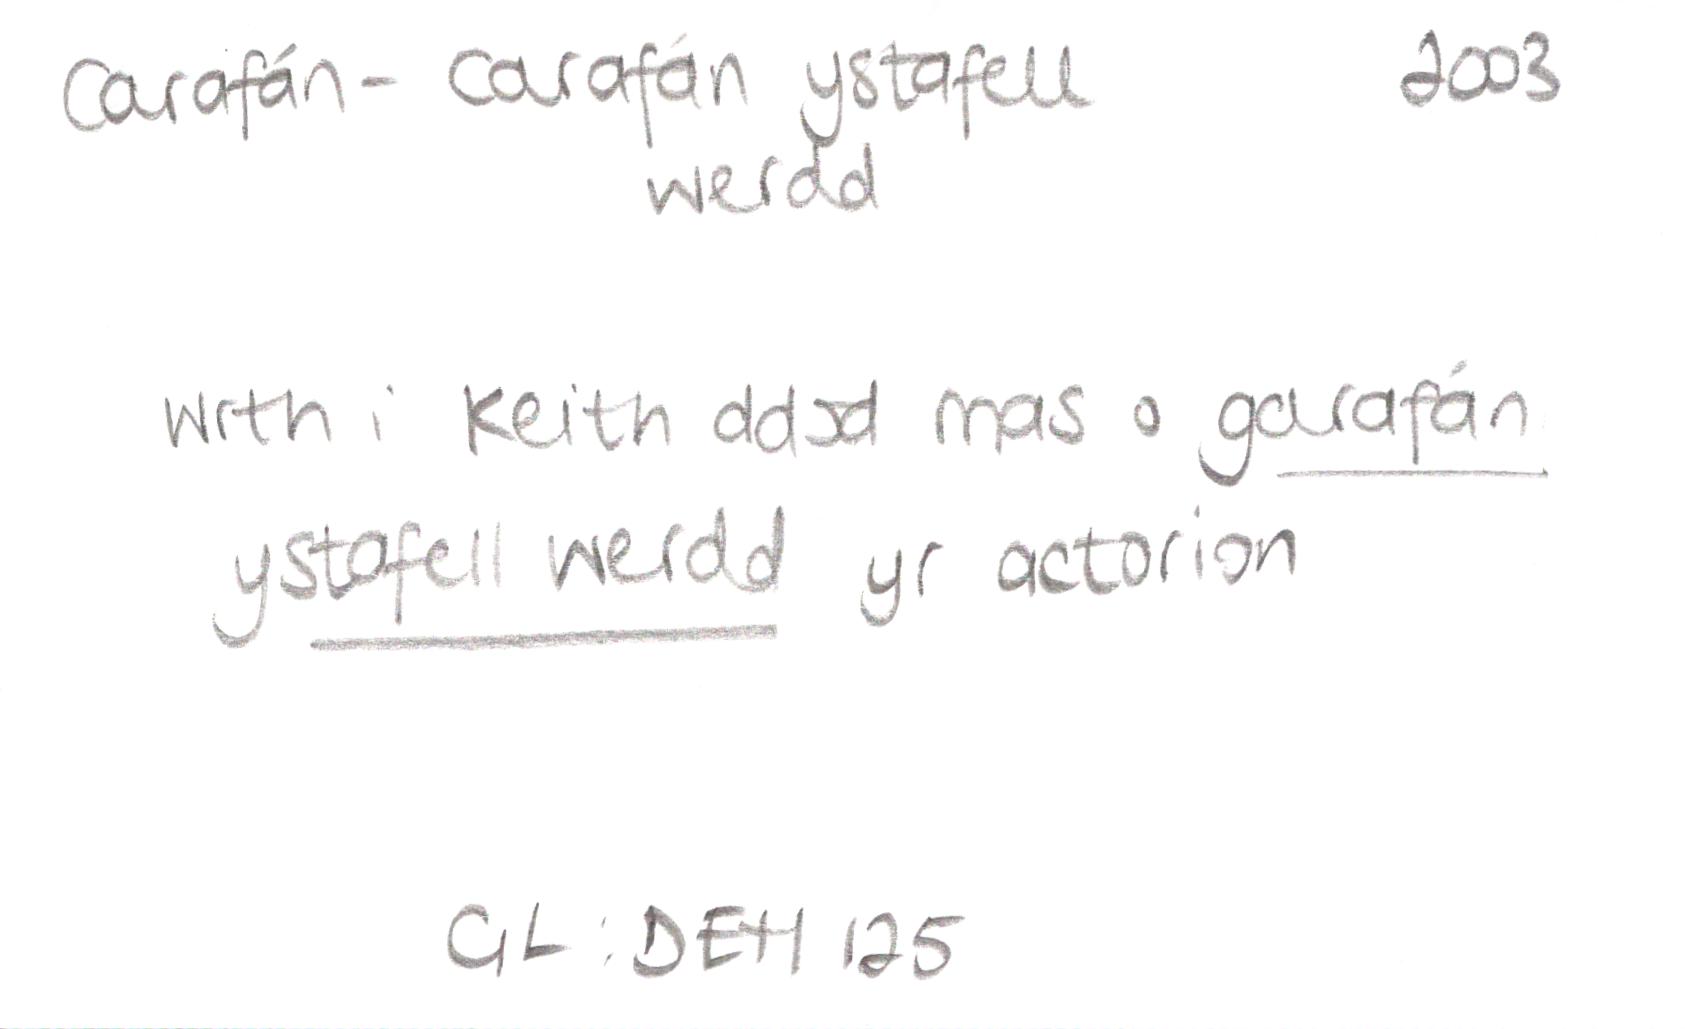 Carafán - Carafán ystafell 2003
werdd
Wrth i Keith ddod mas o garafán
ystafell werdd yr actorion
GL : DEH 125